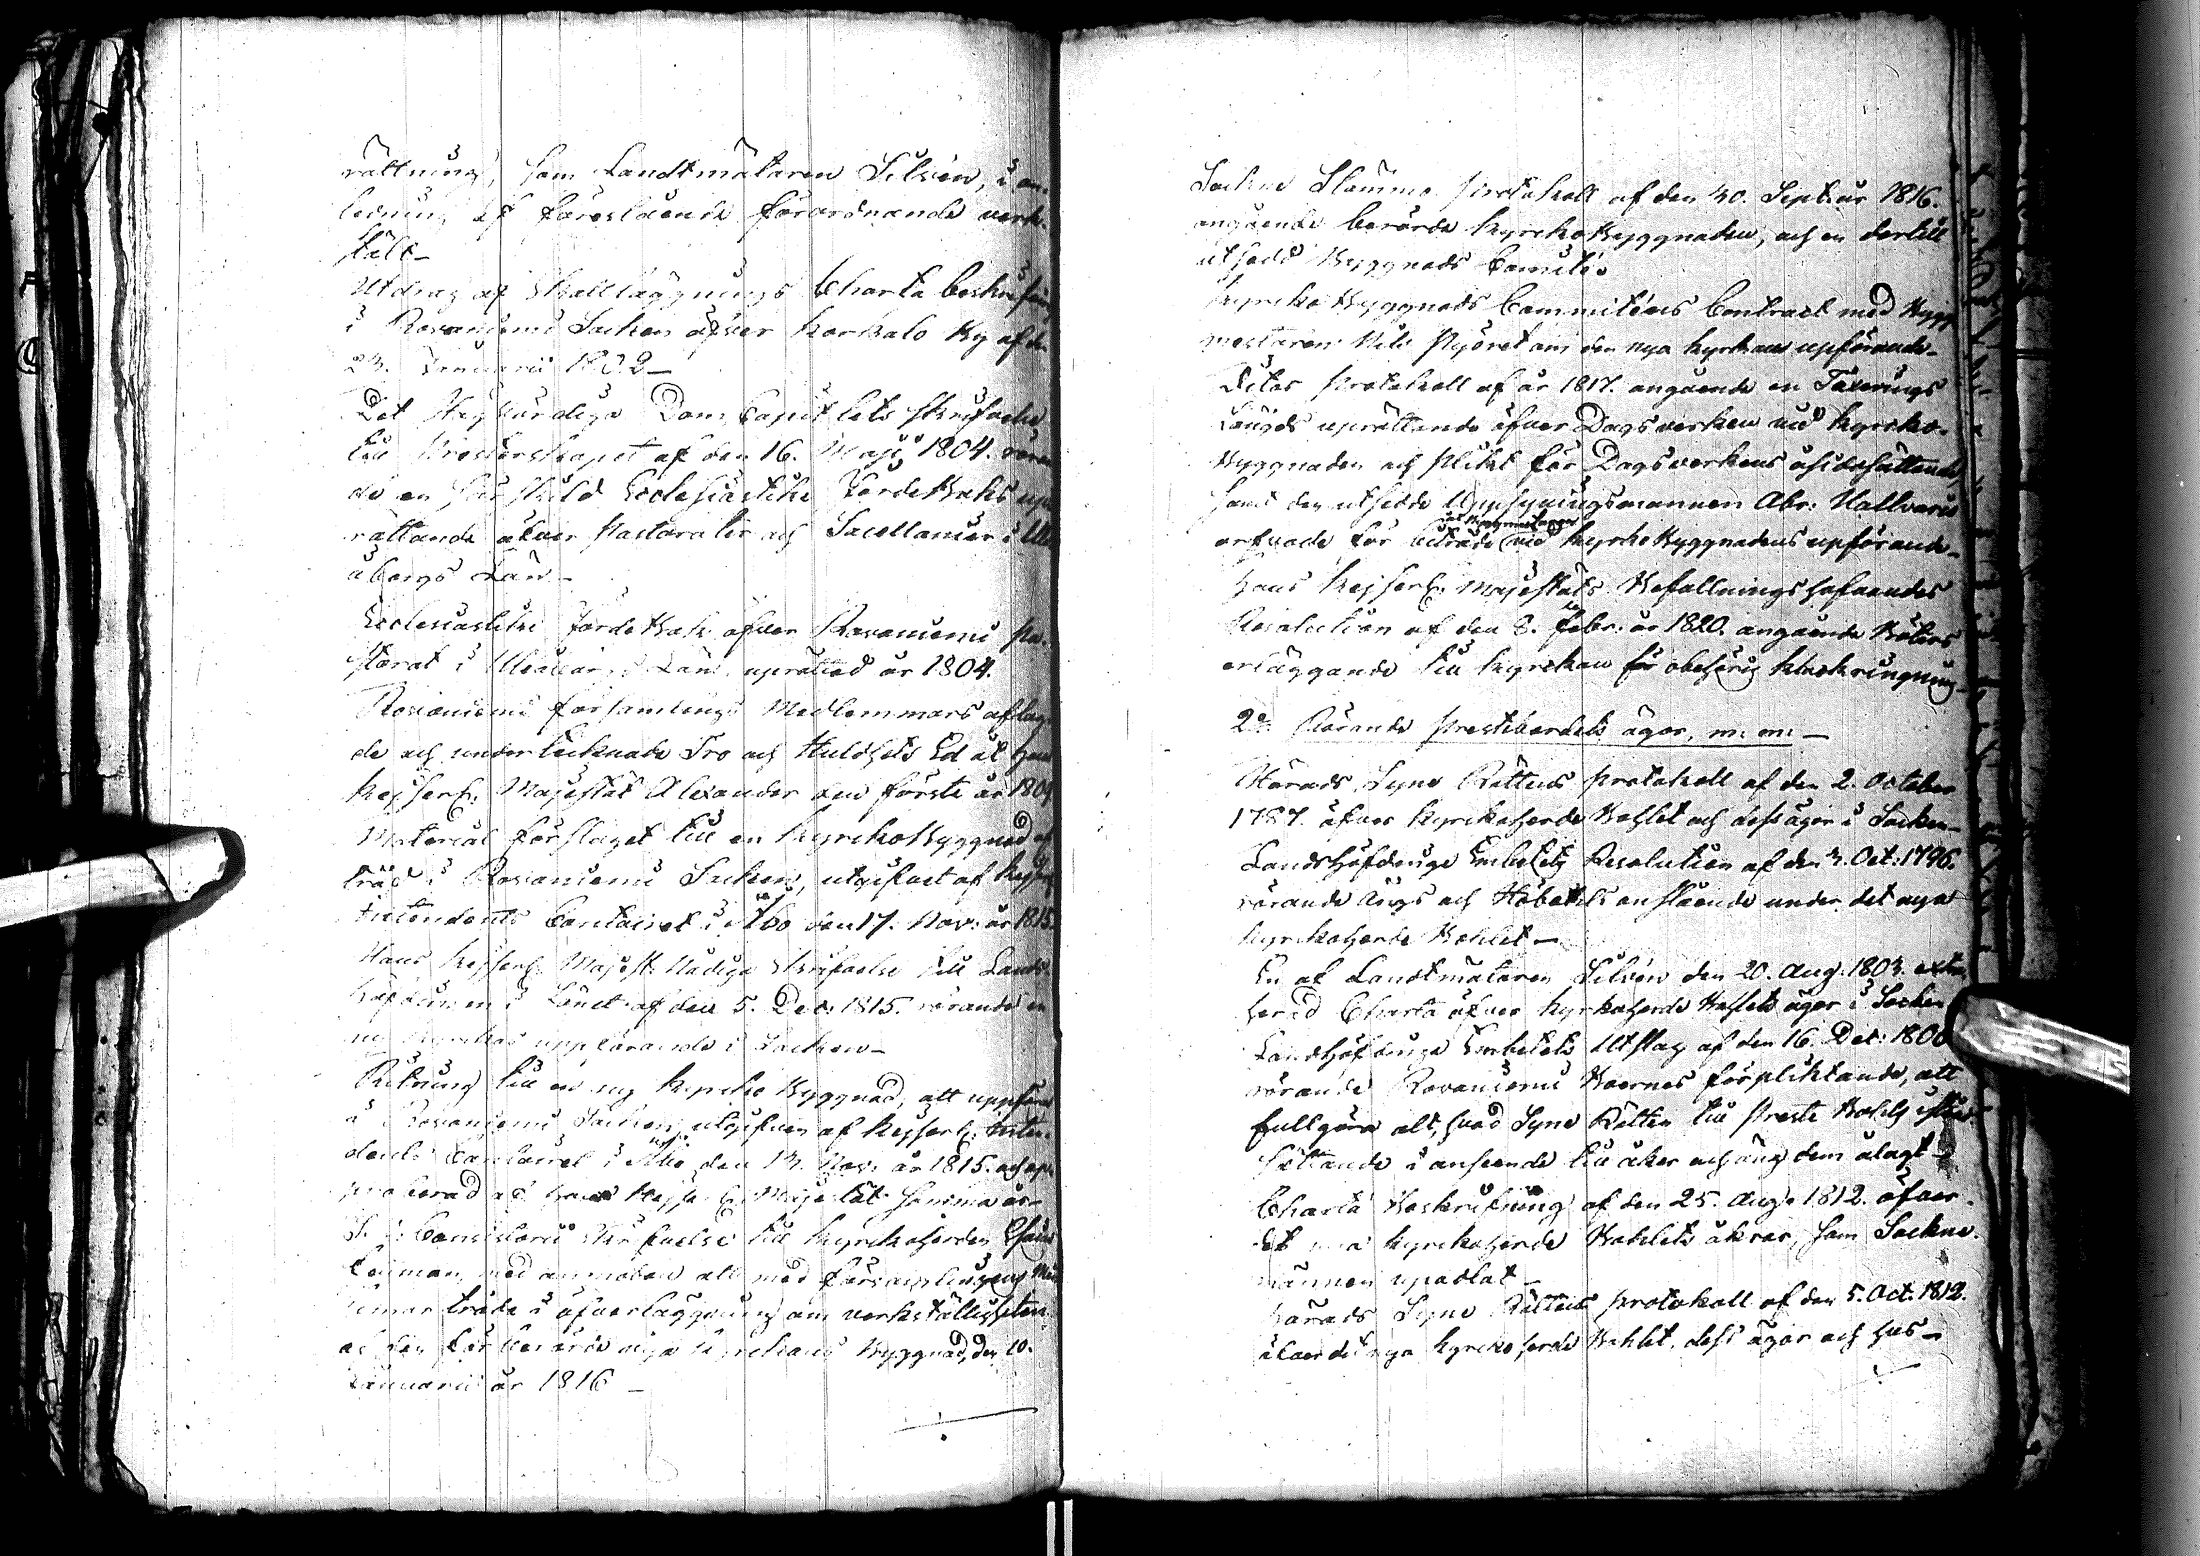 rättning, som Landtmätaren Silvén, i an-
ledning af föreslående förordnande verk-
stält_
Utdrag af Skattläggnings Charta beskrifning
i Rovaniemi Socken öfver Korkalo By af den
23. Januarii 1802_
Det Högvürdiga Dom Capitlets skrifvelse
till Prosterskapet af den 16. Maji 1804. röran-
de en särskild Ecclesiastike Jordeboks upp-
rättande öfver Pastoratier och Sacellanier i Ule-
åborgs Län_
Ecclesiastike Jordebok öfver Rovaniemi Pa-
storat i Uleåborgs Län uprättad år 1804.
Rovaniemi församlings Medlemmars aflag-
de och undertecknade Tro och Huldhets Ed åt Hans
Kejserl: Majestät Alexander den förste år 1809
Material förslaget till en Kyrkobyggnad af
träd i Rovaniemi Socken, utgifvet af Kejserl:
Intendents Contoiret i Åbo den 17. Nov: år 1815.
Hans Kejserl: Majest: Nådiga Skrifvelse till Lands-
höfdingen i Länet af den 5. Dec: 1815. rörande en
ny Kyrkas uppförande i Socken_
Ritning till en ny Kyrko Byggnad, att uppföras
i Rovaniemi Socken utgifven af Kejserl: Inten-
dents Contoiret i Åbo den 13. Nov: år 1815. och ap-
proberad af Hans Kejserl: Majestät samma år_
Consistorii Skrifvelse till Kyrkoherden Esaias
med anmodan att med församlingens Med-
lemar träda i öfverläggning om verkställigheten
af den förberörde nya Kyrkans Byggnad, den 10.
Januarii år 1816_
Sockne Stämmo Protokoll af den 30. Sept: år 1816.
angående berörde Kyrkobyggnaden, och en dertill
utsedd Byggnads Comité_
Kyrko Byggnads Committéns Contract med Bygg
mestaren Nils om den nya Kyrkans upförande_
Ditos Protokoll af år 1817. angående en Taxerings
Längds uprättande öfver Dagsverken vid Kyrko-
Byggnaden och Plikt för Dagsverkens åsidosättande,
samt den utsedde Uppsyningsmannen Abr: Hallvaris
arfvode för biträde vid Kyrko Byggnadens upförande_
Hans Kejserl: Majestäts Befallningshafvandes
Resolution af den 8. Febr: år 1820. angående Böters
erläggande till Kyrckan för obehörig klockringning_
2o: Rörande Prestbordets ägor, m: m: _
Härads Syne Rättens Protokoll af den 2. October
1787. öfver Kyrckoherde Bohlet och dess ägor i Socken_
Landshöfdinge Embetets Resolution af den 3. Oct: 1796.
rörande Ängs och Höbohls anslående under det nya
Kyrckoherde Bohlet_
En af Landtmätaren Silvén den 20. Aug: 1803. extra-
herad Charta öfver Kyrkoherde Bohlets ägor i Socken
Landshöfdinge Embetets Utslag af den 16. Dec: 1806
rörande Rovaniemi Boernes förpliktande, att
fullgöra alt, hvad Syne Rätten till Preste Bohlets istånd-
sättande i anseende till åker och äng dem ålagt_
Charta Beskrifning af den 25. Aug: 1812. öfver
det nya Kyrckoherde Bohlets åkrar, som Sockne-
männen upodlat_
Härads Syne Rättens Protokoll af den 5. Oct: 1812.
öfver det nya Kyrckoherde Bohlet, dess ägor och hus_